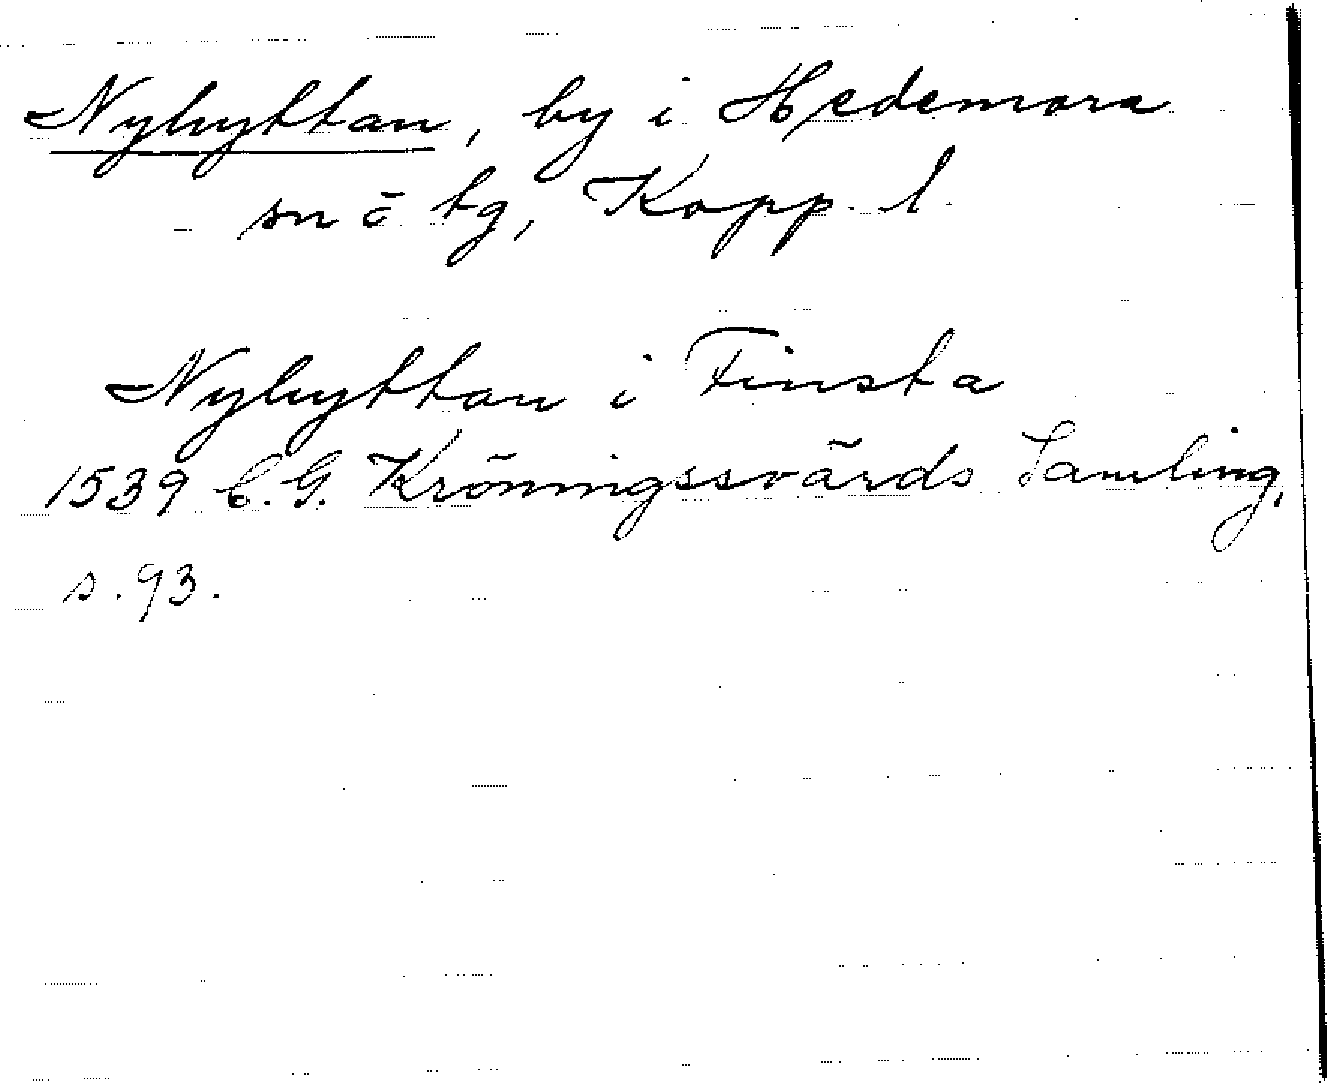 Nyhyttan, by i Hedemora
sn o tg, Kopp. l
Nyhyttan i Finsta
1539 C. G. Kröningssvärds Samling,
s. 93.